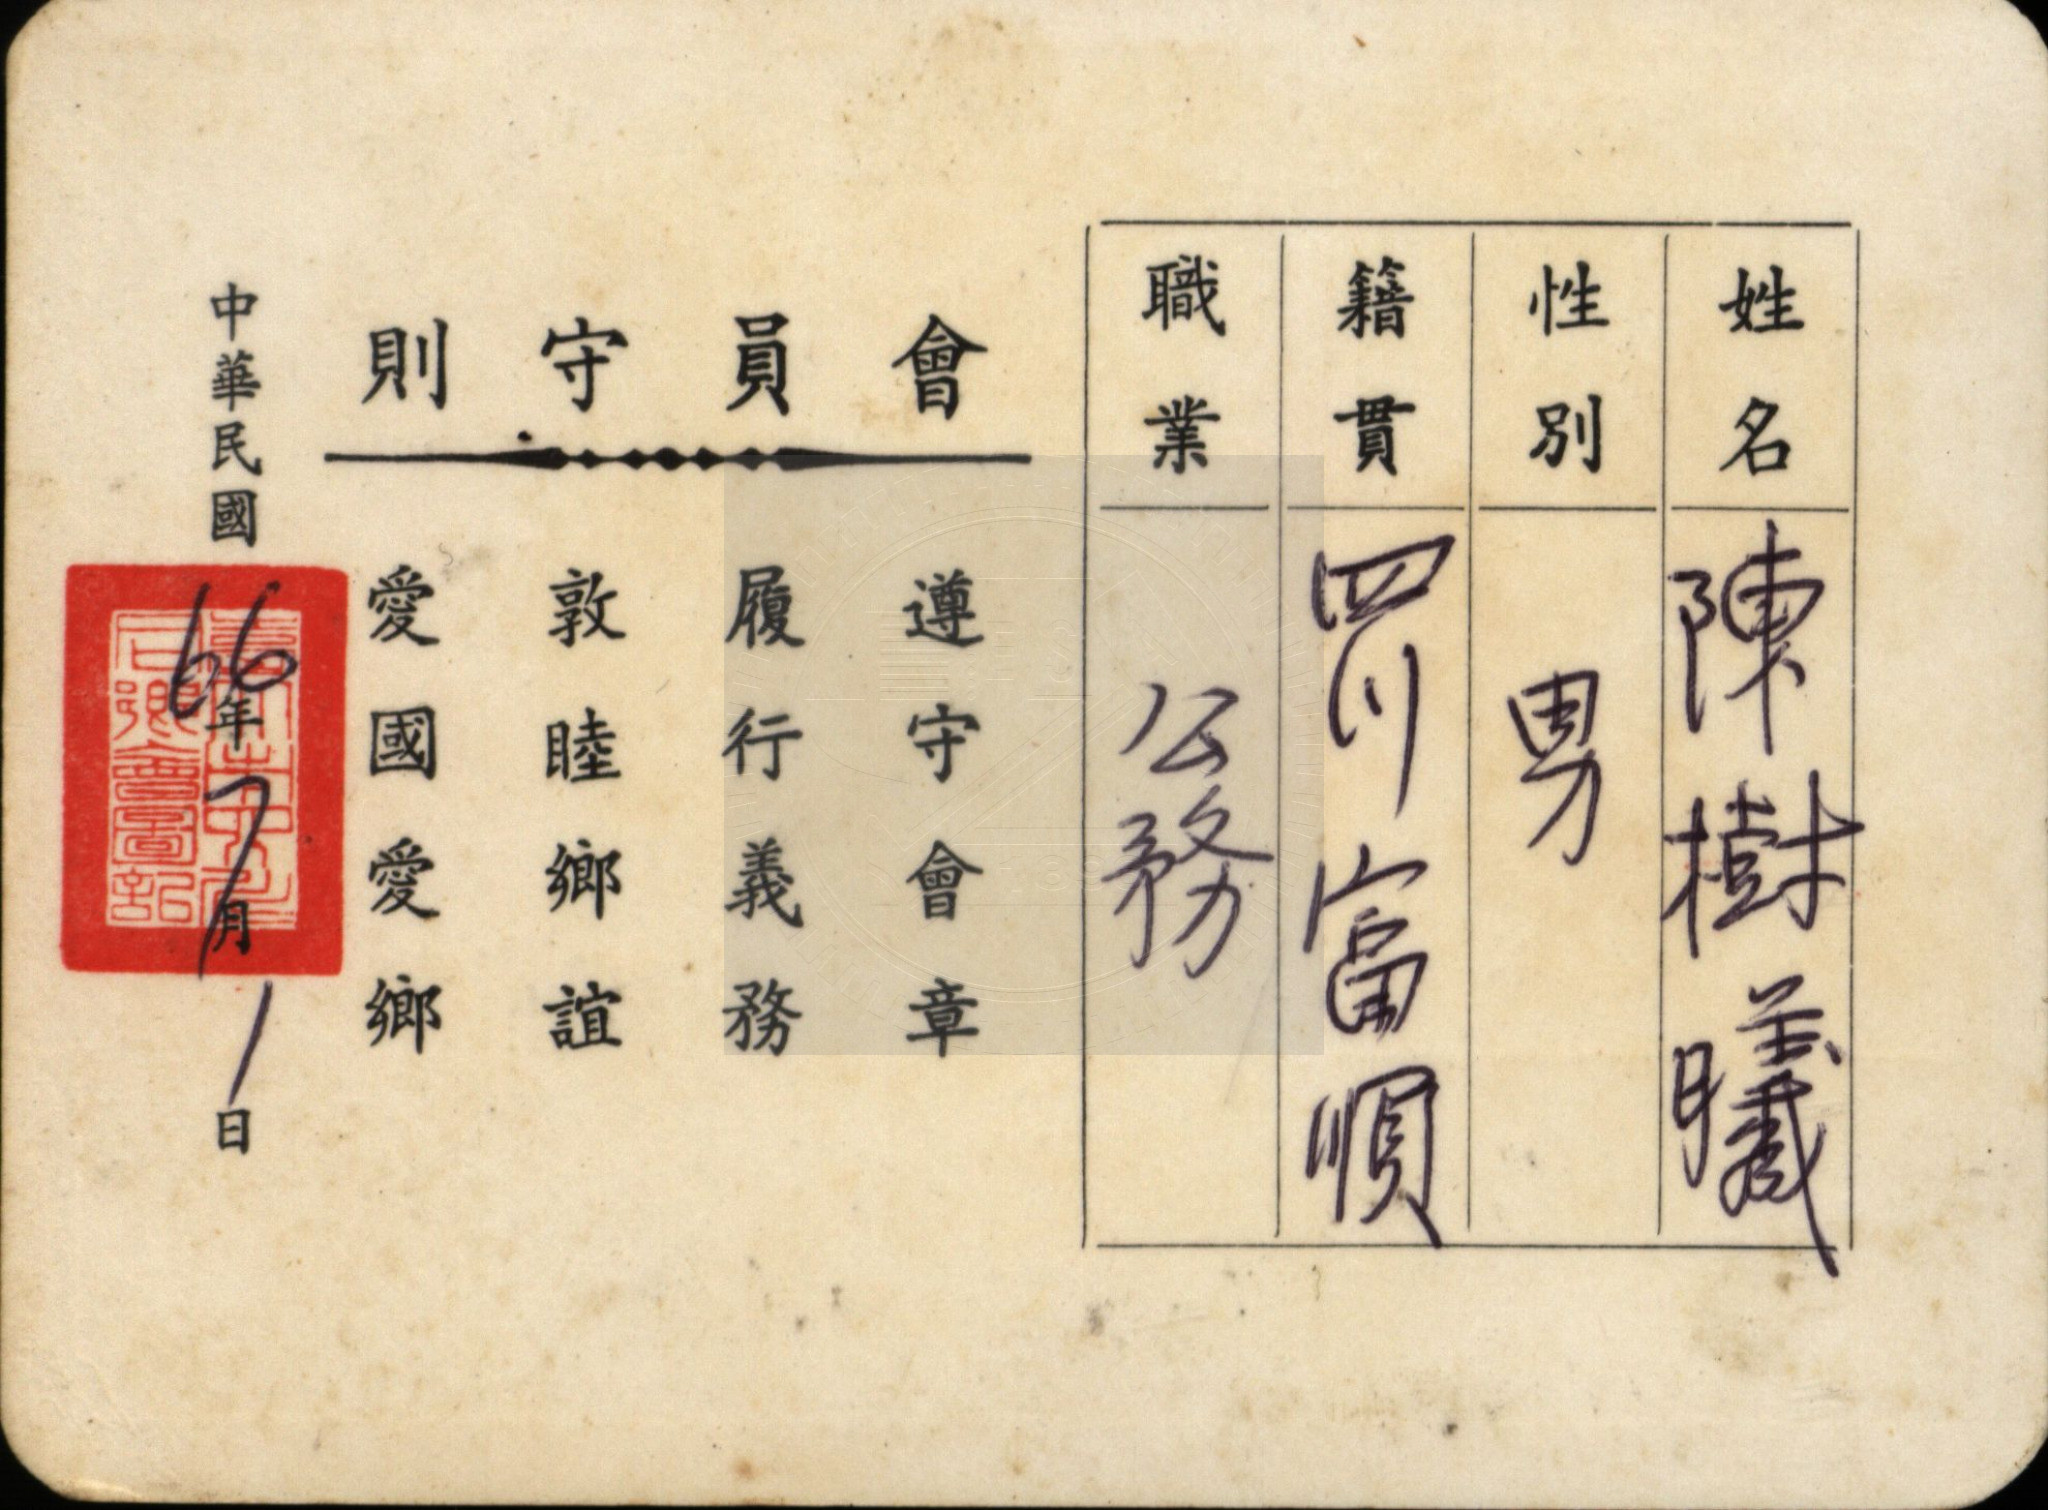 姓名 陳樹曦
性別 男
籍貫 四川富順
職業 公務
會員守則
遵守會章
履行義務
敦睦鄉誼
愛國愛鄉
中華民國66年7月1日